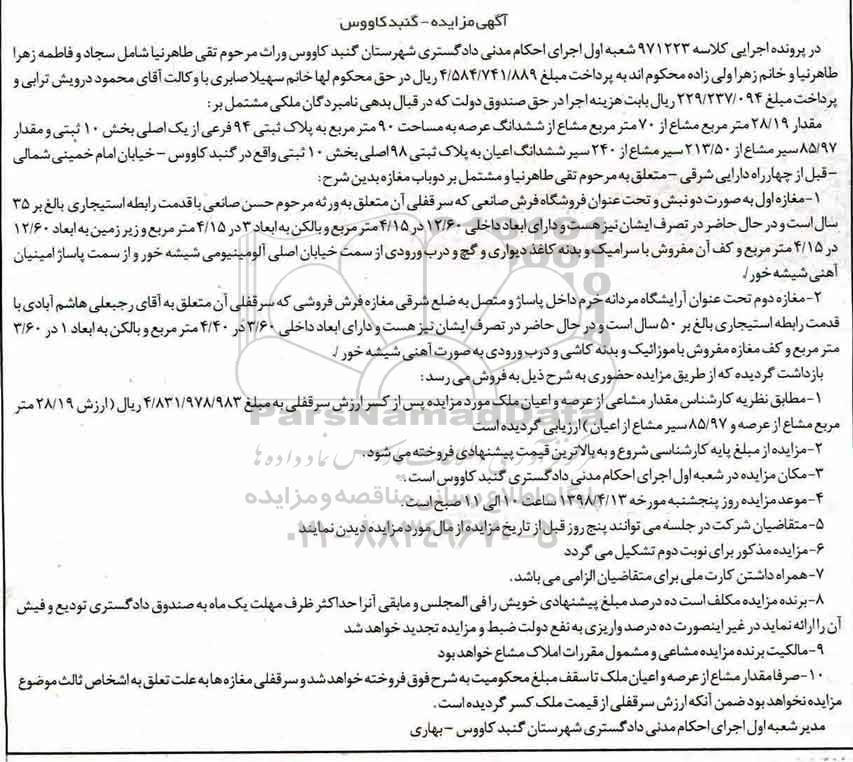 آگهی مزایده - گنبد کاووس
در پرونده اجرایی کلاسه ۹۷۱۲۲۳ شعبه اول اجرای احکام مدنی دادگستری شهرستان گنبد کاووس وراث مرحوم تقی طاهرنیا شامل سجاد و فاطمه زهرا
طاهرنیا و خانم زهرا ولی زاده محکوم اند به پرداخت مبلغ ۴/۵۸۴/۷۴۱/۸۸۹ ریال در حق محکوم لها خانم سهیلا صابری با وکالت آقای محمود درویش ترابی و
پرداخت مبلغ ۲۲۹/۲۳۷/۰۹۴ ریال بابت هزینه اجرا در حق صندوق دولت که در قبال بدهی نامبردگان ملکی مشتمل بر:
مقدار ۲۸/۱۹ متر مربع مشاع از ۷۰ متر مربع مشاع از ششدانگ عرصه به مساحت ۹۰ متر مربع به پلاک ثبتی ۹۴ فرعی از یک اصلی بخش ۱۰ ثبتی و مقدار
۸۵/۹۷ سیر مشاع از ۲۱۳/۵۰ سیر مشاع از ۲۴۰ سیر ششدانگ اعیان به پلاک ثبتی ۹۸ اصلی بخش ۱۰ ثبتی واقع در گنبد کاووس - خیابان امام خمینی شمالی
- قبل از چهارراه دارایی شرقی - متعلق به مرحوم تقی طاهرنیا و مشتمل بر دو باب مغازه بدین شرح:
۱- مغازه اول به صورت دو نبش و تحت عنوان فروشگاه فرش صانعی که سرقفلی آن متعلق به ورثه مرحوم حسن صانعی با قدمت رابطه استیجاری بالغ بر ۳۵
سال است و در حال حاضر در تصرف ایشان نیز هست و دارای ابعاد داخلی ۱۲/۶۰ در ۴/۱۵ متر مربع و بالکن به ابعاد ۳ در ۴/۱۵ متر مربع و زیر زمین به ابعاد ۱۲/۶۰
در ۴/۱۵ متر مربع و کف آن مفروش با سرامیک و بدنه کاغذ دیواری و گچ و درب ورودی از سمت خیابان اصلی آلومینیومی شیشه خور و از سمت پاساژ امینیان
آهنی شیشه خور/.
۲- مغازه دوم تحت عنوان آرایشگاه مردانه خرم داخل پاساژ و متصل به ضلع شرقی مغازه فرش فروشی که سرقفلی آن متعلق به آقای رجبعلی هاشم آبادی با
قدمت رابطه استیجاری بالغ بر ۵۰ سال است و در حال حاضر در تصرف ایشان نیز هست و دارای ابعاد داخلی ۳/۶۰ در ۴/۴۰ متر مربع و بالکن به ابعاد ۱ در ۳/۶۰
متر مربع و کف مغازه مفروش با موزائیک و بدنه کاشی و درب ورودی به صورت آهنی شیشه خور /.
بازداشت گردیده که از طریق مزایده حضوری به شرح ذیل به فروش می رسد :
۱- مطابق نظریه کارشناس مقدار مشاعی از عرصه و اعیان ملک مورد مزایده پس از کسر ارزش سرقفلی به مبلغ ۴/۸۳۱/۹۷۸/۹۸۳ ریال ( ارزش ۲۸/۱۹ متر
مربع مشاع از عرصه و ۸۵/۹۷ سیر مشاع از اعیان ) ارزیابی گردیده است
۲- مزایده از مبلغ پایه کارشناسی شروع و به بالاترین قیمت پیشنهادی فروخته می شود.
۳- مکان مزایده در شعبه اول اجرای احکام مدنی دادگستری گنبد کاووس است .
۴- موعد مزایده روز پنجشنبه مورخه ۱۳۹۸/۴/۱۳ ساعت ۱۰ الی ۱۱ صبح است.
۵- متقاضیان شرکت در جلسه می توانند پنج روز قبل از تاریخ مزایده از مال مورد مزایده دیدن نمایند
۶- مزایده مذکور برای نوبت دوم تشکیل می گردد
۷- همراه داشتن کارت ملی برای متقاضیان الزامی می باشد.
۸- برنده مزایده مکلف است ده درصد مبلغ پیشنهادی خویش را فی المجلس و مابقی آنرا حداکثر ظرف مهلت یک ماه به صندوق دادگستری تودیع و فیش
آن را ارائه نماید در غیر اینصورت ده درصد واریزی به نفع دولت ضبط و مزایده تجدید خواهد شد
۹- مالکیت برنده مزایده مشاعی و مشمول مقررات املاک مشاع خواهد بود
۱۰- صرفا مقدار مشاع از عرصه و اعیان ملک تا سقف مبلغ محکومیت به شرح فوق فروخته خواهد شد و سرقفلی مغازه ها به علت تعلق به اشخاص ثالث موضوع
مزایده نخواهد بود ضمن آنکه ارزش سرقفلی از قیمت ملک کسر گردیده است.
مدیر شعبه اول اجرای احکام مدنی دادگستری شهرستان گنبد کاووس - بهاری
ParsNamadData
پایگاه اطلاع رسانی مناقصه و مزایده
۰۲۱-۸۸۳۴۹۶۷۰-۵